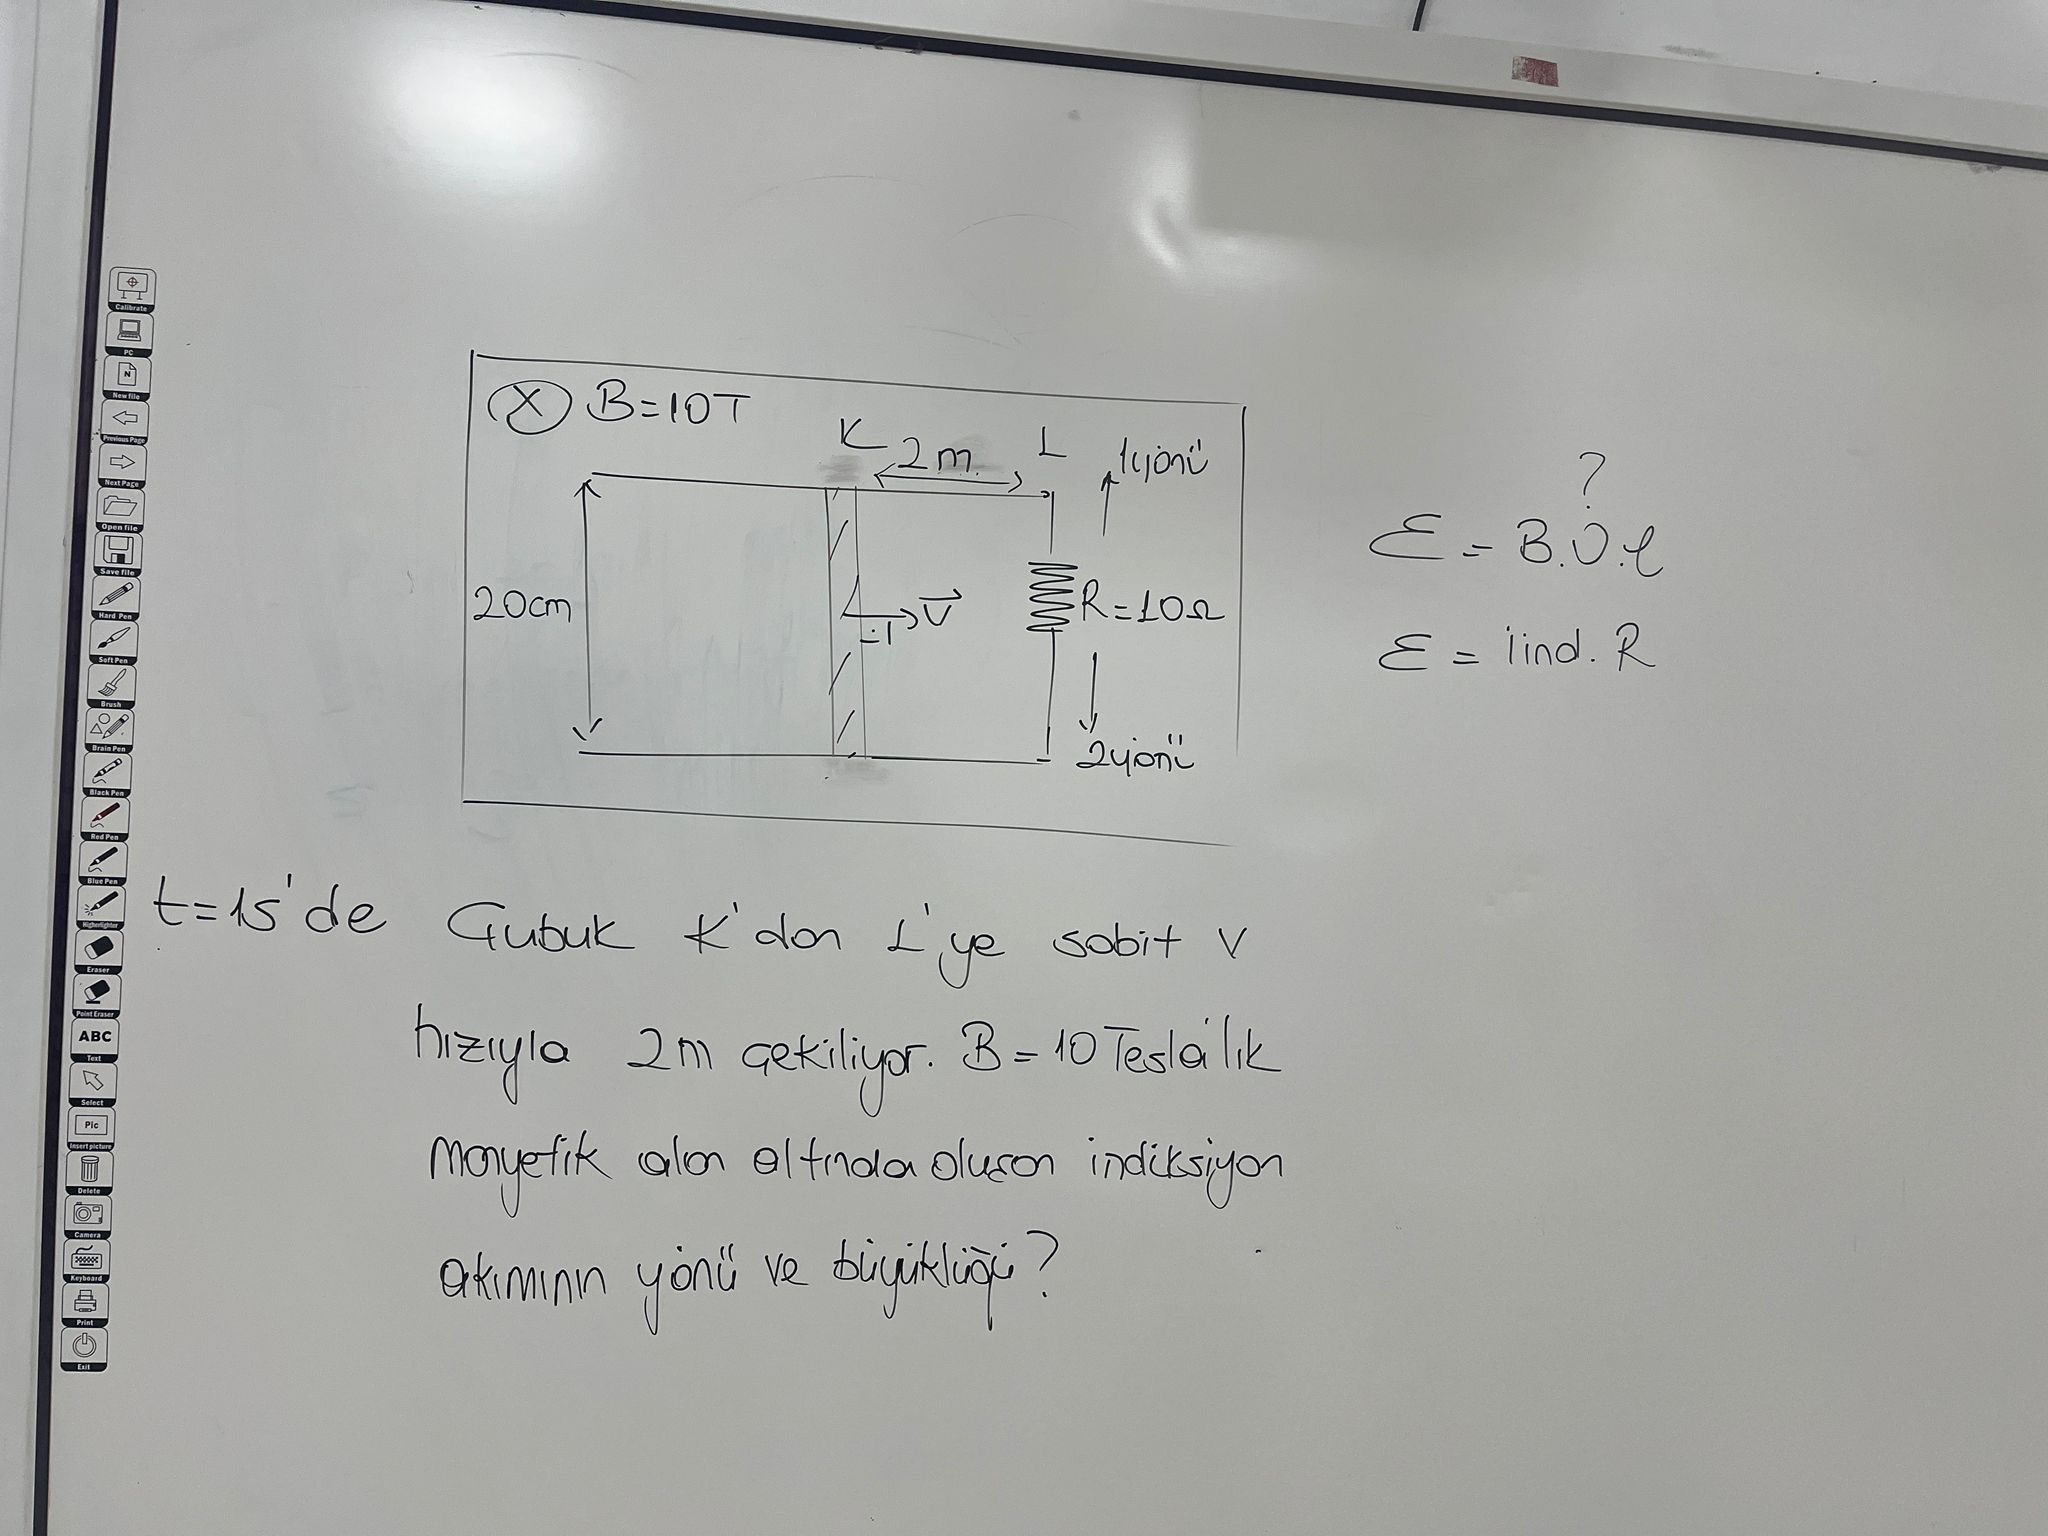 Calibrate
PC
N
New file
Previous Page
Next Page
Open file
Save file
Hard Pen
Soft Pen
Brush
Brain Pen
Black Pen
Red Pen
Blue Pen
Highlighter
Eraser
Point Eraser
ABC
Text
Select
Pic
Insert picture
Delete
Camera
Keyboard
Print
Exit
X B=10T
K 2m L 1yönü
20cm
V
R=10Ω
2yönü
?
ε = B.v.l
ε = iind. R
t=1s'de Çubuk K'dan L'ye sabit v
hızıyla 2m çekiliyor. B=10 Tesla'lık
manyetik alan altında oluşan indiksiyon
akımının yönü ve büyüklüğü?